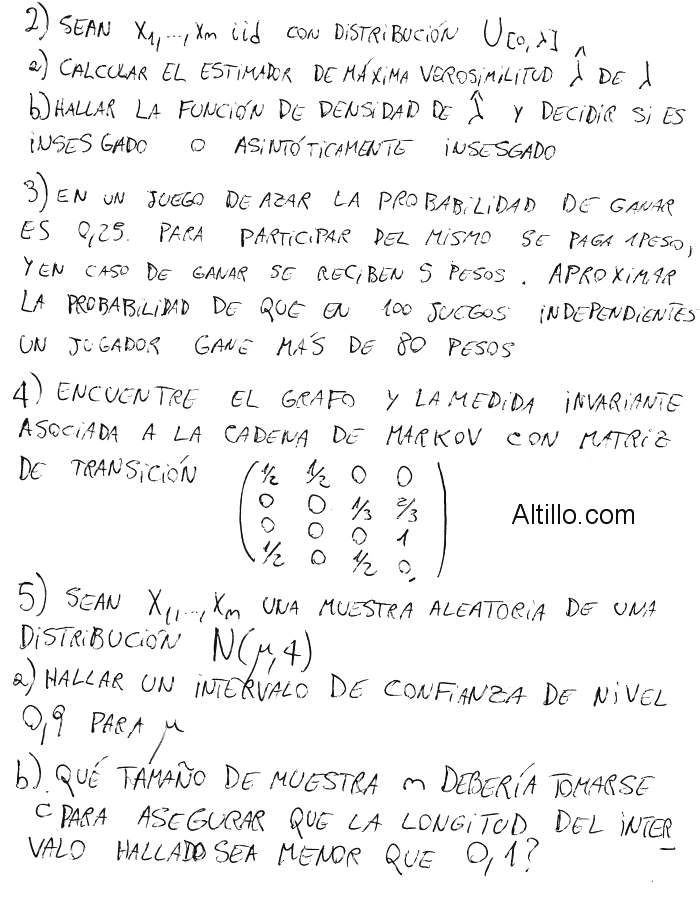 2) SEAN X1,...,Xm iid CON DISTRIBUCIÓN U[0,λ]
a) CALCULAR EL ESTIMADOR DE MÁXIMA VEROSIMILITUD λ̂ DE λ
b) HALLAR LA FUNCIÓN DE DENSIDAD DE λ̂ Y DECIDIR SI ES
INSESGADO O ASINTÓTICAMENTE INSESGADO
3) EN UN JUEGO DE AZAR LA PROBABILIDAD DE GANAR
ES 0,25. PARA PARTICIPAR DEL MISMO SE PAGA 1 PESO,
Y EN CASO DE GANAR SE RECIBEN 5 PESOS. APROXIMAR
LA PROBABILIDAD DE QUE EN 100 JUEGOS INDEPENDIENTES
UN JUGADOR GANE MÁS DE 80 PESOS
4) ENCUENTRE EL GRAFO Y LA MEDIDA INVARIANTE
ASOCIADA A LA CADENA DE MARKOV CON MATRIZ
DE TRANSICIÓN
1/2 1/2 0 0
0 0 1/3 2/3
0 0 0 1
1/2 0 1/2 0
Altillo.com
5) SEAN X1,...,Xm UNA MUESTRA ALEATORIA DE UNA
DISTRIBUCIÓN N(μ,4)
a) HALLAR UN INTERVALO DE CONFIANZA DE NIVEL
0,9 PARA μ
b) QUÉ TAMAÑO DE MUESTRA m DEBERÍA TOMARSE
PARA ASEGURAR QUE LA LONGITUD DEL INTER
VALO HALLADO SEA MENOR QUE 0,1?